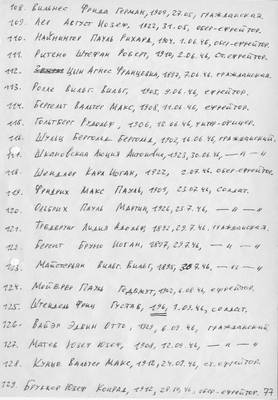 108. Вильнес Фрида Герман, 1909, 27.05, гражданская.
109. Лег Август Иозеф, 1922, 31.05, обер-ефрейтор.
110. Пауль Рихард, 1904, 1.06.46, обер-ефрейтор.
111. Штефан Роберт, 1910, 2.06.46, ст. ефрейтор.
112. Цын Агнес Францевна, 1887, 7.06.46, гражданская.
113. Ролле Вильг. Вильг., 1902, 9.06.46, ефрейтор.
114. Бергельт Вальтер Макс, 1908, 11.06.46, ефрейтор.
115. Гольтберг Рудольф, 1906, 12.06.46, унтер-офицер.
116. Шульц Бертольд Бертольд, 1902, 16.06.46, гражданский.
117. Люция Антоновна, 1923, 30.06.46, — „ — „
118. Шендлер Карл Иоган, 1922, 2.07.46, обер-ефрейтор.
119. Фридрих Макс Пауль, 1909, 23.07.46, солдат.
120. Ольбрих Пауль Мартин, 1926, 25.7.46, — „ — „
121. Лидия Адольф, 1892, 29.7.46, гражданская.
122. Бергит Бруно Иоган, 1897, 29.7.46, — „ — „
123. Вильг. Вильг., 1895, 30.7.46, — „ — „
124. Готфрид, 1902, 6.08.46, ефрейтор.
125. Шрендель Фриц Густав, 196, 9.09.46, солдат.
126. Вайзе Эдвин Отто, 1929, 6.09.46, гражданский.
127. Матов Иозеф Иозеф, 1908, 12.09.46, — „ — „
128. Кунце Вальтер Макс, 1912, 24.09.46, ст. ефрейтор.
129. Бруккер Иозеф Конрад, 1912, 28.10.46, обер-ефрейтор. 77